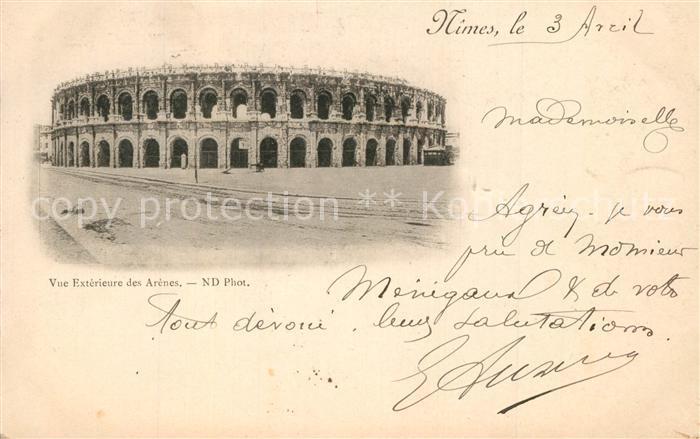 Nîmes, le 3 Avril
Mademoiselle
Agréez je vous
prie de Monsieur
& de votre
tout dévoué. leurs salutations.
Vue Extérieure des Arènes. — ND Phot.
copy protection ** copy protection **